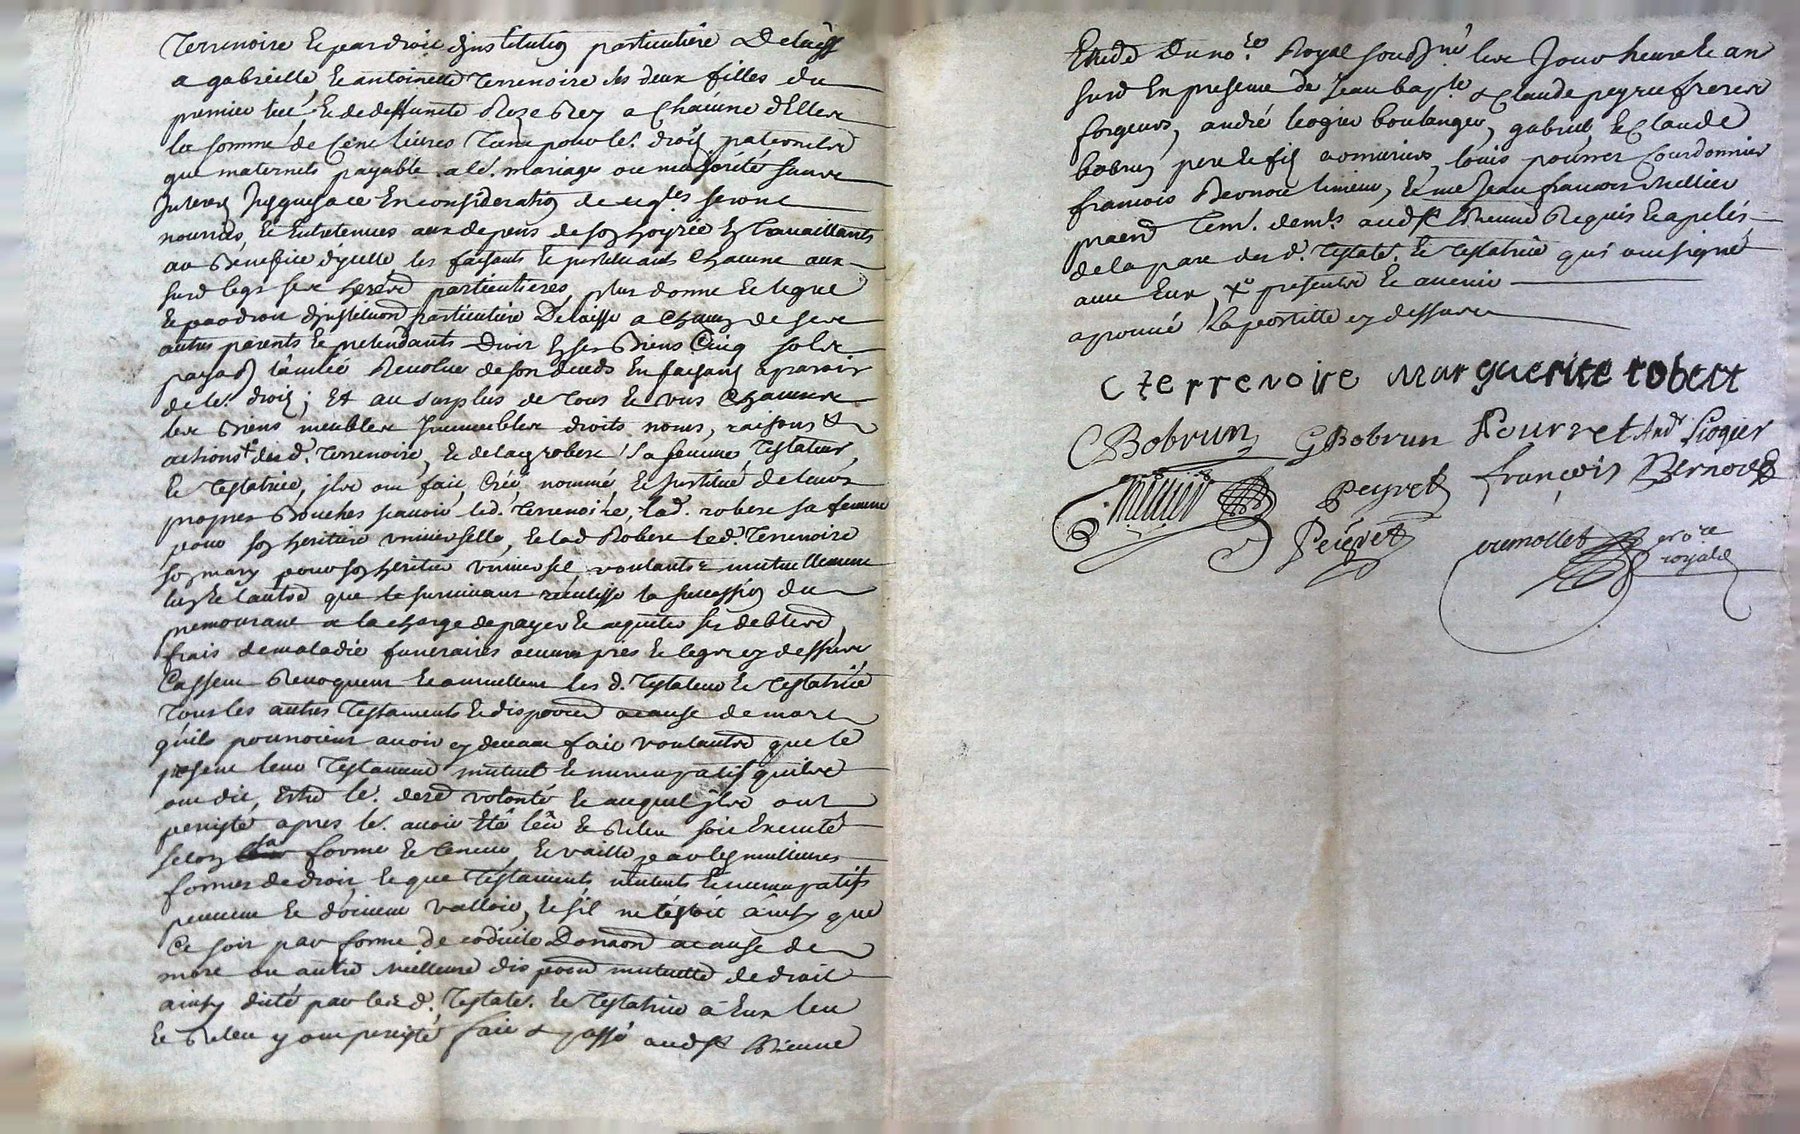 Terrenoire Et par droit d'institution particulière Delaisse
a gabrielle Et antoinette Terrenoire les deux filles du
premier lict, Et de deffuncte Roze Rey a Chacune d'Elles
la somme de Cent livres Tant pour le.^s droits paternels
que maternels payable a le.^r mariage ou majorité sans
Interest Jusques a ce En consideration de ce q.les seront
nourries, Et Entretenues aux depens de son hoyrie En Travaillants
au Benefice d'ycelle les faisants Et instituants Chacune aux
susd legs ses herers particulieres, plus donne Et legue
Et par droit d'institution particuliere Delaisse a Chacun de ses
autres parents Et pretendants Droit En ses Biens Cinq sols
payab. l'année Revolue de son deceds En faisant aparoir
de le.^r droit ; Et au surplus de Tous Et uns Chacuns
les Biens meubles Immeubles droits noms, raisons &
actions desd. Terrenoire, Et de lad robert sa femme Testateur,
Et Testatrice, ils ont fait, Créé nommé Et institué de leurs
propres Bouches sçavoir led. Terrenoire, lad. robert sa femme
pour son heritiere universelle, Et lad Robert led. Terrenoire
son mary pour son heritier universel, voulants mutuellement
l'un Et l'autre que le survivant recueillisse la succession du
premourant a la charge de payer Et aquitter ses debtes,
frais de maladie funeraires œuvres pies Et legs cy dessus
Cassent Revoquent Et annullent les d. Testateur Et Testatrice
Tous les autres Testaments Et disposons a cause de mort
qu'ils pourroient avoir cy devant fait voulants que le
present leur Testament mutuel Et nuncupatif qu'ils
ont dit, Estre le.^r dere volonté Et auquel ils ont
persisté apres le.^r avoir Eté leu Et Releu soit Executé
selon sa forme Et teneur, Et vaille par les meilleures
formes de droit, Et que Testaments mutuels Et nuncupatifs
peuvent Et doivent valloir, Et s'il ne l'estoit ainsy que
Ce soit par forme de codicile Donaon a cause de
mort ou autre meilleure disposon mutuelle de droit
ainsy dicté par les d. Testate.^r Et Testatrice a Eux leu
Et Releu y ont persisté fait & passé aud St Etienne
Etude Du no.re Royal soussigné les Jour heure Et an
susd En presence de Jean bap.te & Claude peyret freres
forgeurs, andré liogier boulanger, gabriel, Et Claude
bobrun pere Et fils armuriers, louis pourret Courdonnier
francois Bernou limeur, Et me Jean francois Mellier
praen Tem.^s dem.ts aud St Etienne Requis Et apelés
de la part des d. Testate.^r Et Testatrice qui ont signé
avec Eux, presents Et avenir
aprouvé l'apostille cy dessus
C terrenoire Marguerite robert
C Bobrun G Bobrun Pourret And Liogier
Mellier Peyret françois Bernou
Peyret
no.re
royal